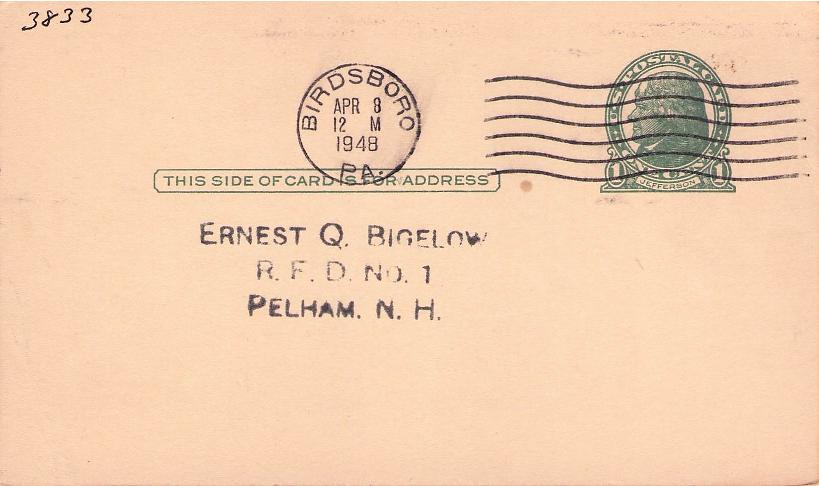 3833
BIRDSBORO
APR 8
12 M
1948
PA.
U.S. POSTAL CARD
1 CENT 1
JEFFERSON
THIS SIDE OF CARD IS FOR ADDRESS
ERNEST Q. BIGELOW
R. F. D. NO. 1
PELHAM. N. H.